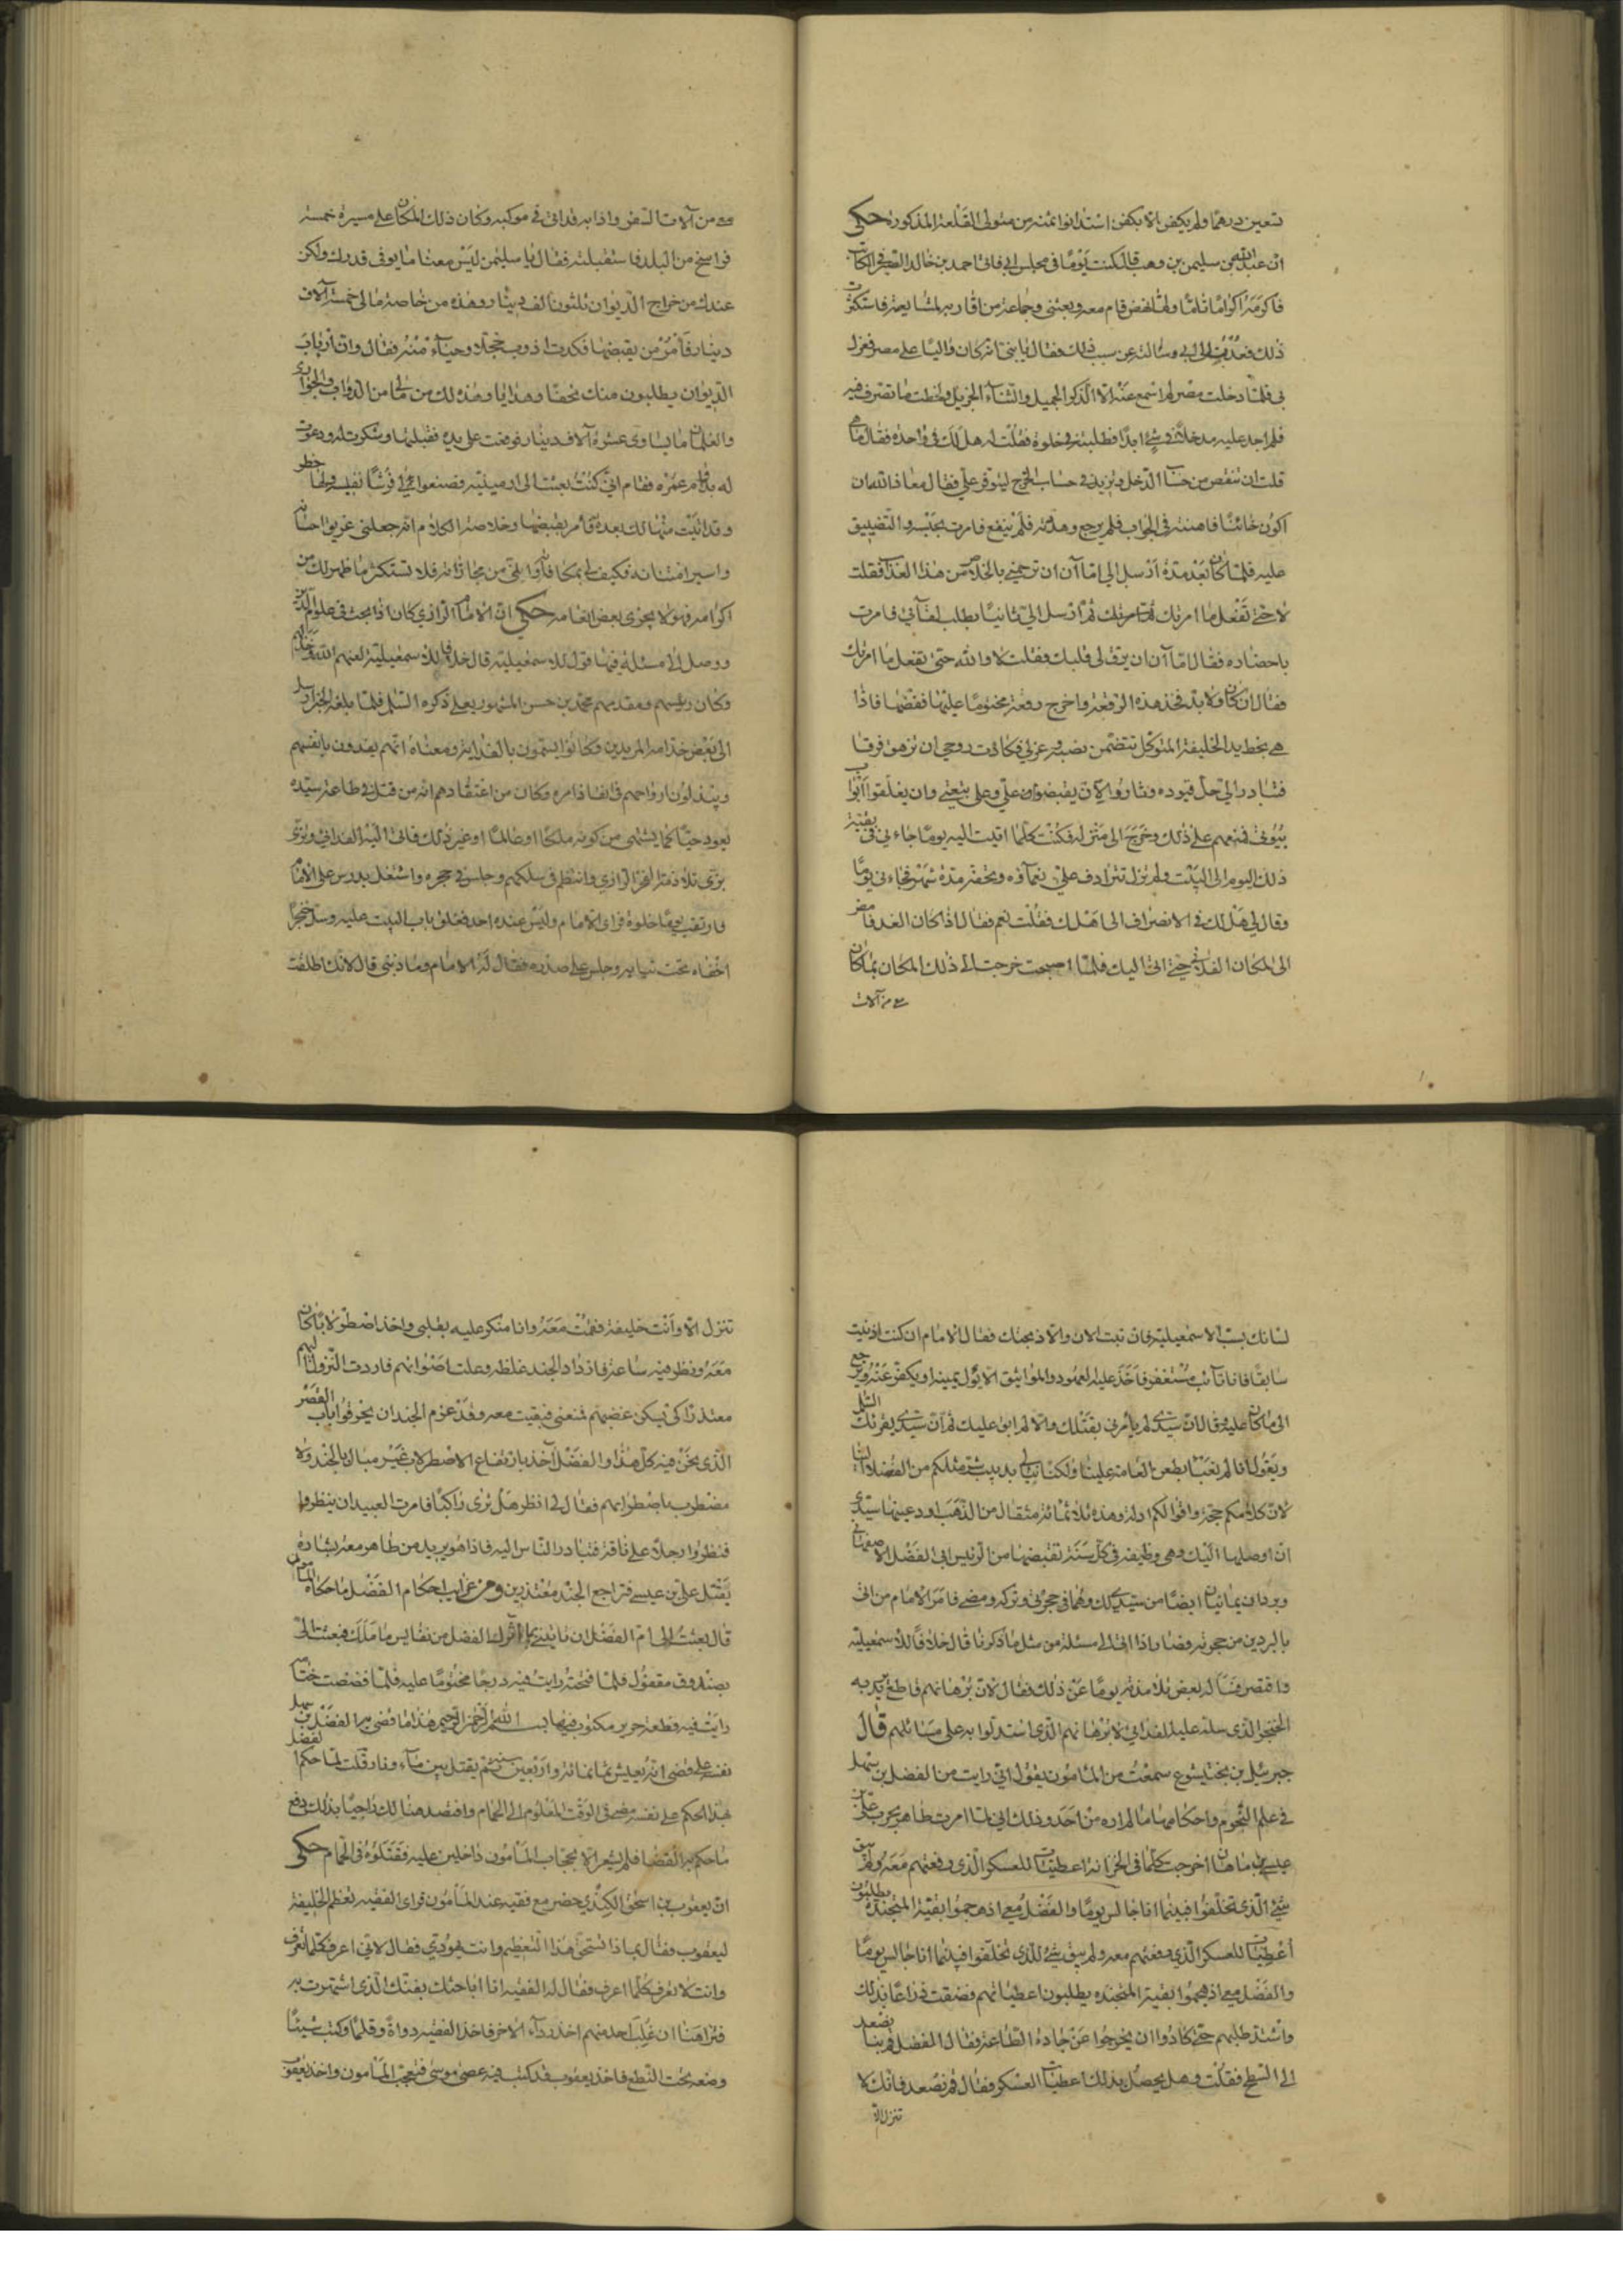 تعين درهما ولم يكفن الا بكفن استدانوا ثمنه من متولى القلعة المذكورة حكى
ان عبد الله بن سليمن بن وهب قال كنت يوما فى مجلس ابى فاتى احمد بن خالد الصريفى الكاتب
فاكرمه اكراما تاما ولما نهض قام معه وبعثنى وجماعة من اقاربه لمشايعته فاستكثرت
ذلك فعدت الى ابى وسالته عن سبب ذلك فقال يا بنى انه كان واليا على مصر فعزل
بى فلما دخلت مصر لم اسمع عنه الا الذكر الجميل والثناء الجزيل ولحظت ما تصرف فيه
فلم اجد عليه مدخلا فى شئ ابدا فطلبته فى خلوة فقلت له هل لك فى واحدة فقال ما هى
قلت ان تنقص من حساب الدخل وتزيد فى حساب الخرج ليتوفر على فقال معاذ الله ان
اكون خائنا فاهنته فى الجواب فلم يرجع وهددته فلم ينفع فامرت بحبسه والتضييق
عليه فلما كان بعد مدة ارسل الى اما آن ان ترحمنى بالخلاص من هذا العذاب فقلت
لا حتى تفعل ما امرتك به ثم ارسل الى ثانيا يطلب لقائى فامرت
باحضاره فقال اما آن ان يرق لى قلبك فقلت لا والله حتى تفعل ما امرتك
فقال ان كان ولا بد فخذ هذه الرقعة واخرج رقعة مختوما عليها ففضها فاذا
هى بخط يد الخليفة المتوكل تتضمن نصبه وعزلى فكادت روحى ان تزهق فرقا
فتبادر الى حل قيوده وثاروا الآن يقبضون على وعلى بنيعتى وان يغلقوا ابواب
بيوتى فمنعهم على ذلك وخرج الى منزله فكنت كلما اتيت اليه يوما جاءنى فى بقية
ذلك اليوم الى البيت ولم تزل تترادف على نعماؤه وتحفه مدة شهر فجاءنى يوما
وقال لى هل لك فى الانصراف الى اهلك فقلت نعم فقال اذا كان الغد فامض
الى المكان الفلانى حتى اتى اليك فلما اصبحت خرجت الى ذلك المكان بما كان
معى من آلات
معى من آلات السفر واذا به قد اتى فى موكبه وكان ذلك المكان على مسيرة خمسة
فراسخ من البلد فاستقبلته فقال يا سليمن ليس معنا ما يوفى قدرك ولكن
عندك من خراج الديوان ثلثون الف دينار وهذه من خاصة مالى خمسة آلاف
دينار فامر من يقبضها فكدت اذوب خجلا وحياء منه فقال وان ارباب
الديوان يطلبون منك تحفا وهدايا وهذه لك من مالى من الدواب والجوارى
والغلمان ما يساوى عشرة آلاف دينار فوقعت على يده فقبلتها وشكرت له ودعوت
له بدوام عمره فقام انى كنت بعثت الى ارمينية فصنعوا لى فرشا نفيسة ولها خطر
وقد اتيت منها لك بعدة فامر بقبضها وخلاصة الكلام انه جعلنى غريق احسانه
واسير امتنانه فكيف لى بمكافأته واتى من مجازاته فلا تستكثر ما ظهر لك من
اكرامه فهو لا يجزى بعض انعامه حكى ان الامام الرازى كان اذا بحث فى علوم الدين
ووصل الى مسئلة فيها قول للاسمعيلية قال خلافا للاسمعيلية لعنهم الله وخذلهم
وكان رئيسهم ومقدمهم محمد بن حسن المشهور بعلى ذكره السلم فلما بلغه الخبر ارسل
الى بعض خدامه المريدين وكانوا يسمون بالفدايية ومعناه انهم يفدون بانفسهم
ويبذلون ارواحهم فى انفاذ امره وكان من اعتقادهم انه من قتل فى طاعة سيده
يعود حيا كما يشتهى من كونه ملكا او ظالما او غير ذلك فاتى اليه الفدائى وتزى
بزى تلامذة الفخر الرازى وانتظم فى سلكهم وجلس فى حجره واشتغل بدرس على الامام
فارتقب يوما خلوة فراى الامام وليس عنده احد فغلق باب البيت عليه وسل خنجرا
اخفاه تحت ثيابه وجلس على صدره فقال له الامام وما ذنبى قال لانك اطلقت
لسانك بسب الاسمعيلية فان تبت الان والا ذبحتك فقال الامام ان كنت اذنبت
سابقا فانا تائب مستغفر فاخذ عليه العهود والمواثيق الا يؤل يمينه او يكفر عنه ويرجع
الى ما كان عليه وقال ان سيدى لم يأمرنى بقتلك والا لم ابق عليك ثم ان سيدى يقرئك السلام
ويقول انا لم نعبأ بطعن العامة علينا ولكنا نبالى بدبيب شتم مثلكم من الفضلاء لنا
لان كلامكم حجة واقوالكم ادلة وهذه ثلاثمائة مثقال من الذهب اودعنيها سيدى
ان اوصلها اليك وهى وظيفة فى كل سنة تقبضها من الرئيس ابى الفضل الاصفهانى
وبردان يمانيان ايضا من سيدى لك وهما فى حجرتى وتركه ومضى فامر الامام من اتى
بالبردين من حجرته وصار اذا اتى الى مسئلة من مثل ما ذكرنا قال خلافا للاسمعيلية
واقتصر فسأله بعض تلامذته يوما عن ذلك فقال لان برهانهم قاطع يريد به
الخنجر الذى سله عليه الفدائى لا برهانهم الذى استدلوا به على مسائلهم قال
جبرئيل بن بختيشوع سمعت من المامون يقول انى رايت من الفضل بن سهل
فى علم النجوم واحكامها ما لم اره من احد وذلك انى لما امرت طاهر بحرب على بن
عيسى بن ماهان اخرجت كلما فى الخزانة اعطيات للعسكر الذى دفعتهم معه ولم يبق
شئ للذى تخلفوا فبينما انا جالس يوما والفضل معى اذ هجموا بقية المتجندة يطلبون
اعطيات للعسكر الذى دفعتهم معه ولم يبق شئ للذى تخلفوا فبينما انا جالس يوما
والفضل معى اذ هجموا بقية المتجندة يطلبون اعطياتهم فضقت ذراعا بذلك
واشتد طلبهم حتى كادوا ان يخرجوا عن جادة الطاعة فقال الفضل قم بنا نصعد
الى السطح فقلت وهل يحصل بذلك اعطيات العسكر فقال قم نصعد فانك لا
تنزل الا
تنزل الا وانت خليفة فقمت معه وانا منكر عليه بقلبى واخذ اصطرلابا كان
معه ونظر فيه ساعة فازداد الجند غلظة وعلت اصواتهم فاردت النزول اليهم
معتذرا كى تسكن غضبهم فمنعنى فبقيت معه وقد عزم الجند ان يخرقوا باب القصر
الذى نحن فيه كل هذا والفضل آخذ بارتفاع الاصطرلاب غير مبال بالجند ولا
مضطرب باضطرابهم فقال لى انظر هل ترى راكبا فامرت العبيد ان ينظروا
فنظروا رجلا على ناقة فتبادر الناس اليه فاذا هو بريد من طاهر معه بشارة
بقتل على بن عيسى فتراجع الجند معتذرين ومن غرايب احكام الفضل ما حكاه المامون
قال بعثت الى ام الفضل ان تأتينى بما اترك الفضل من نفايس ما ملك فبعثت الى
بصندوق مقفول فلما فتحته رايت فيه درجا مختوما عليه فلما فضضت ختامه
رايت فيه قطعة حرير مكتوب فيها بسم الله الرحمن الرحيم هذا ما قضى به الفضل بن سهل
نفسه على قضى انه يعيش ثمانمائة واربعين سنة ثم يقتل بين ماء ونار وقلت لما حكم الفضل
بهذا الحكم على نفسه مضى فى الوقت المعلوم الى الحمام وافتصد هنالك راجيا بذلك دفع
ما حكم به القضا فلم يشعر الا بحجاب المامون داخلين عليه فقتلوه فى الحمام حكى
ان يعقوب بن اسحق الكندى حضر مع فقيه عند المامون فراى الفقيه تعظيم الخليفة
ليعقوب فقال بماذا تستحق هذا التعظيم وانت يهودى فقال لانى اعرف كلما تعرف
وانت لا تعرف كلما اعرف فقال له الفقيه انا اباحثك بفنك الذى اشتهرت به
فتراهنا ان غلب احد منهم اخذ رداء الاخر فاخذ الفقيه دواة وقلما وكتب شيئا
وضعه تحت النطع فاخذ يعقوب قد كتب فيه عصى موسى فتعجب المامون واخذ يعقوب